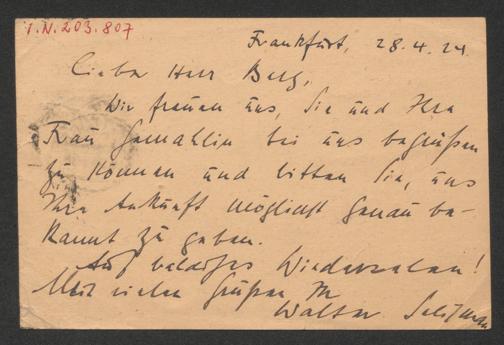 I.N. 203.807
Frankfurt, 28.4.24.
Lieber Herr Berg,
Wir freuen uns, Sie und Ihre
Frau Gemahlin bei uns begrüßen
zu können und bitten Sie, uns
Ihre Ankunft möglichst genau be-
kannt zu geben.
Auf baldiges Wiedersehen!
Mit vielen Grüßen Ihr
Walter